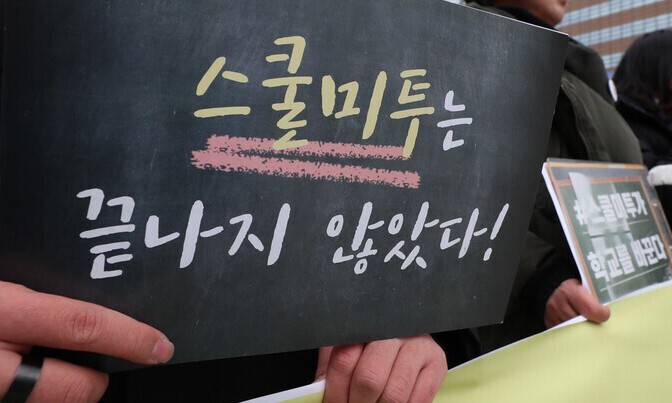 스쿨미투는
끝나지 않았다!
#스쿨미투가
학교를 바꾼다